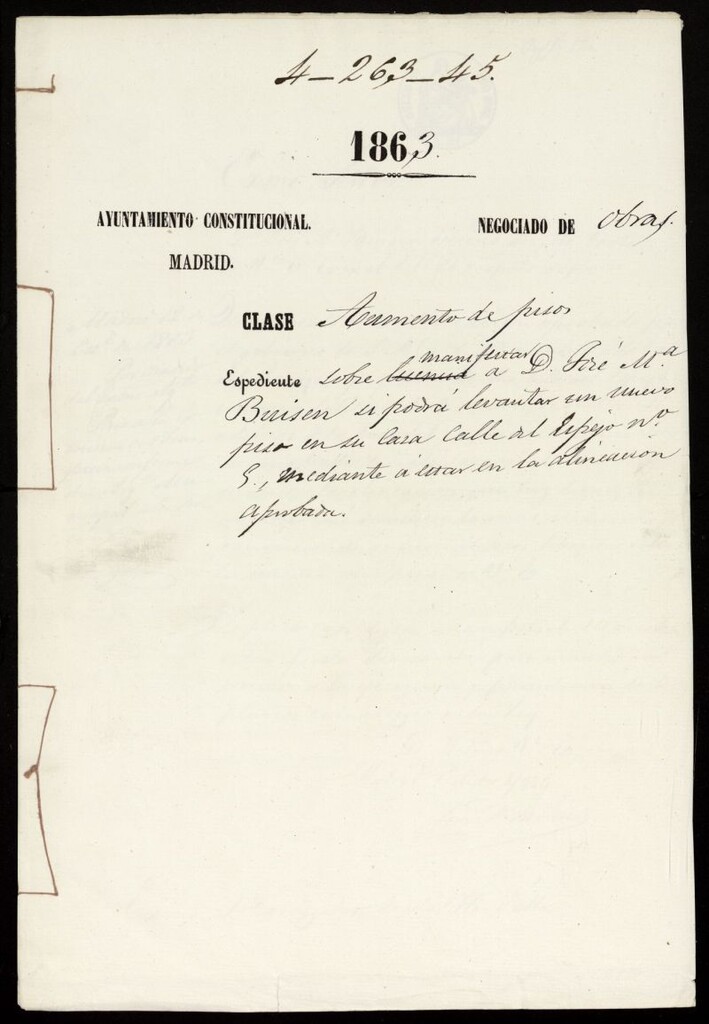 4-263-45.
1863.
AYUNTAMIENTO CONSTITUCIONAL.
MADRID.
NEGOCIADO DE Obras.
CLASE Aumento de pisos
manifestar
Espediente sobre a D. José M.ª
si podrá levantar un nuevo
piso en su Casa Calle del Espejo nº
5., mediante á estar en la alineacion
aprobada.